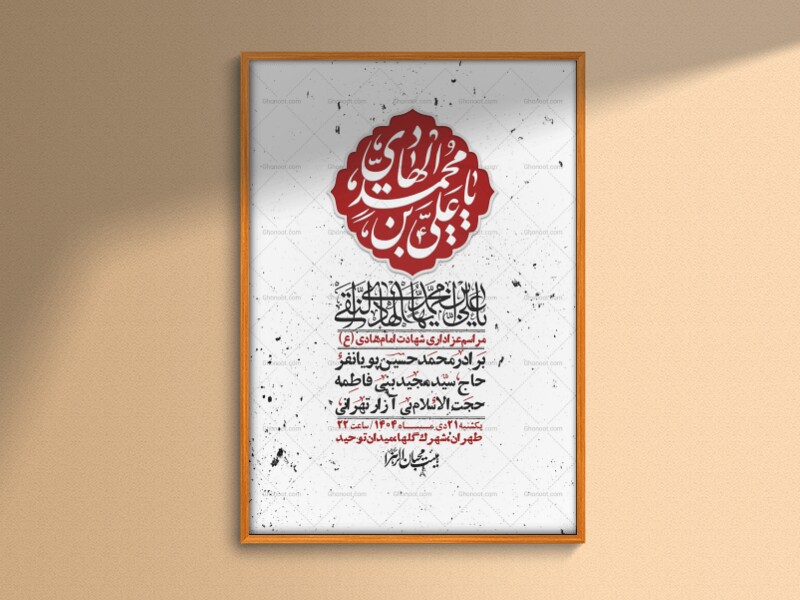 یا علی بن محمد الهادی
یا علی بن محمد ایها الهادی النقی
مراسم عزاداری شهادت امام هادی (ع)
برادر محمد حسین پویانفر
حاج سید مجید بنی فاطمه
حجت الاسلام بی آزار تهرانی
یکشنبه ۲۱ دی مـــاه ۱۴۰۴ / ساعت ۲۲
طهران، شهرک گلها، میدان توحید
هیئت محبان الزهرا
Ghonoot.com